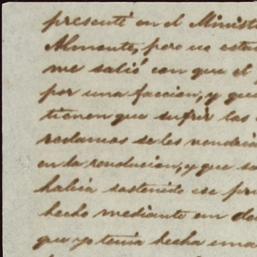 presenté en el Minist
Almonte, pero no esta
me salió con que el
por una faccion, y que
tienen que sufrir las
reclamos se les vendria
en la revolucion, y que so
habia sostenido ese pri
hecho mediante un de
que yo tenia hecha una